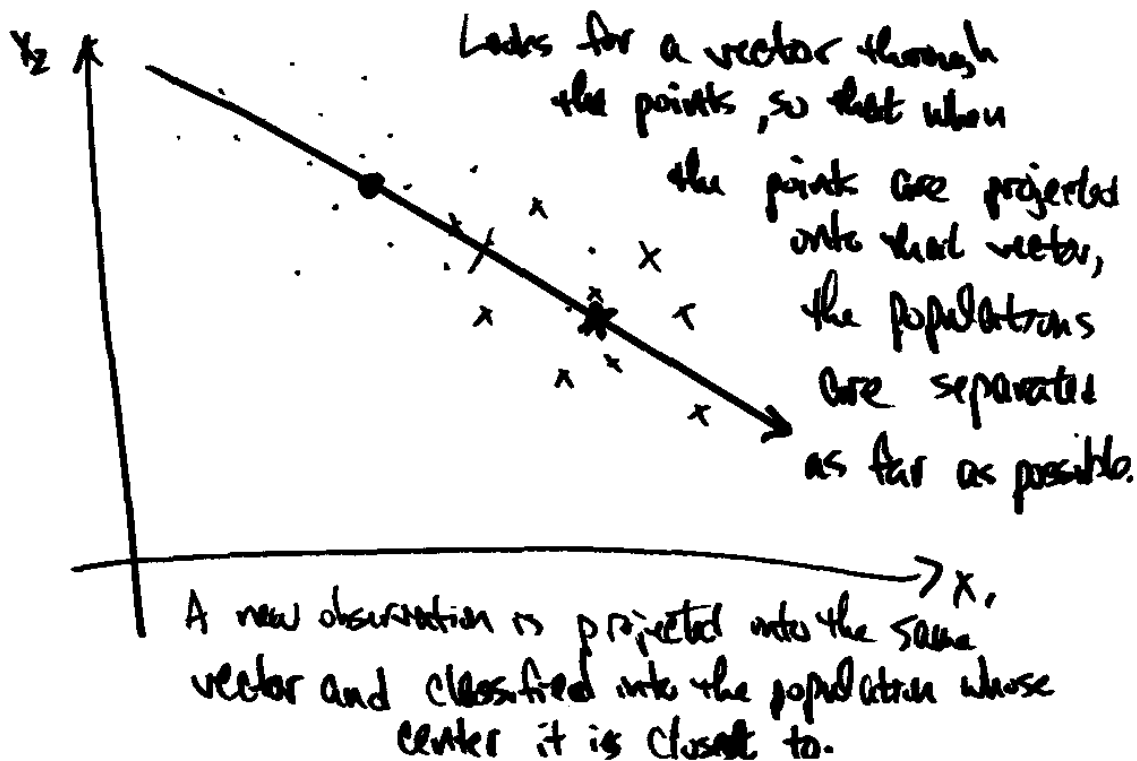 X₂
Looks for a vector through
the points, so that when
the points are projected
onto that vector,
the populations
are separated
as far as possible.
X₁
A new observation is projected into the same
vector and classified into the population whose
center it is closest to.